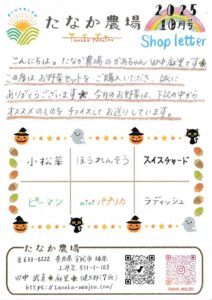 たなか農場
Tanaka Noujou
2025
10月号
Shop letter
こんにちは。たなか農場のかあちゃん 田中麻里です☆
この度はお野菜セットを ご購入いただき、誠に
ありがとうございます★ 今月のお野菜は、下記の中から
オススメのものを チョイスして お送りしています。
小松菜 ほうれんそう スイスチャード
ピーマン パプリカ ラディッシュ
たなか農場
〒633-0222 奈良県宇陀市榛原
上井足511-1-103
https://tanaka-noujou.com/